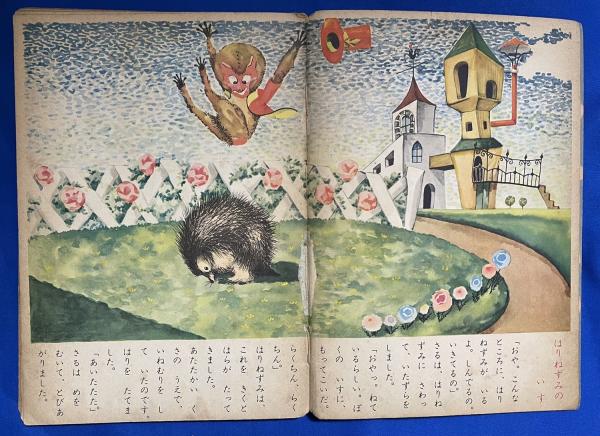 はりねずみの
いす
「おや、こんな
ところに、はり
ねずみが いる
よ。しんでるの。
いきてるの」
さるは、はりね
ずみに さわっ
て、いたずらを
しました。
「おやっ、ねて
いるらしい。ぼ
くの いすに、
もってこいだ。
らくちん、らく
ちん」
はりねずみは
これを きくと
はらが たって
きました。
あたたかい く
さの うえで、
いねむりを し
て いたのです。
はりを たてま
した。
「あいたたた」
さるは めを
むいて、とびあ
がりました。